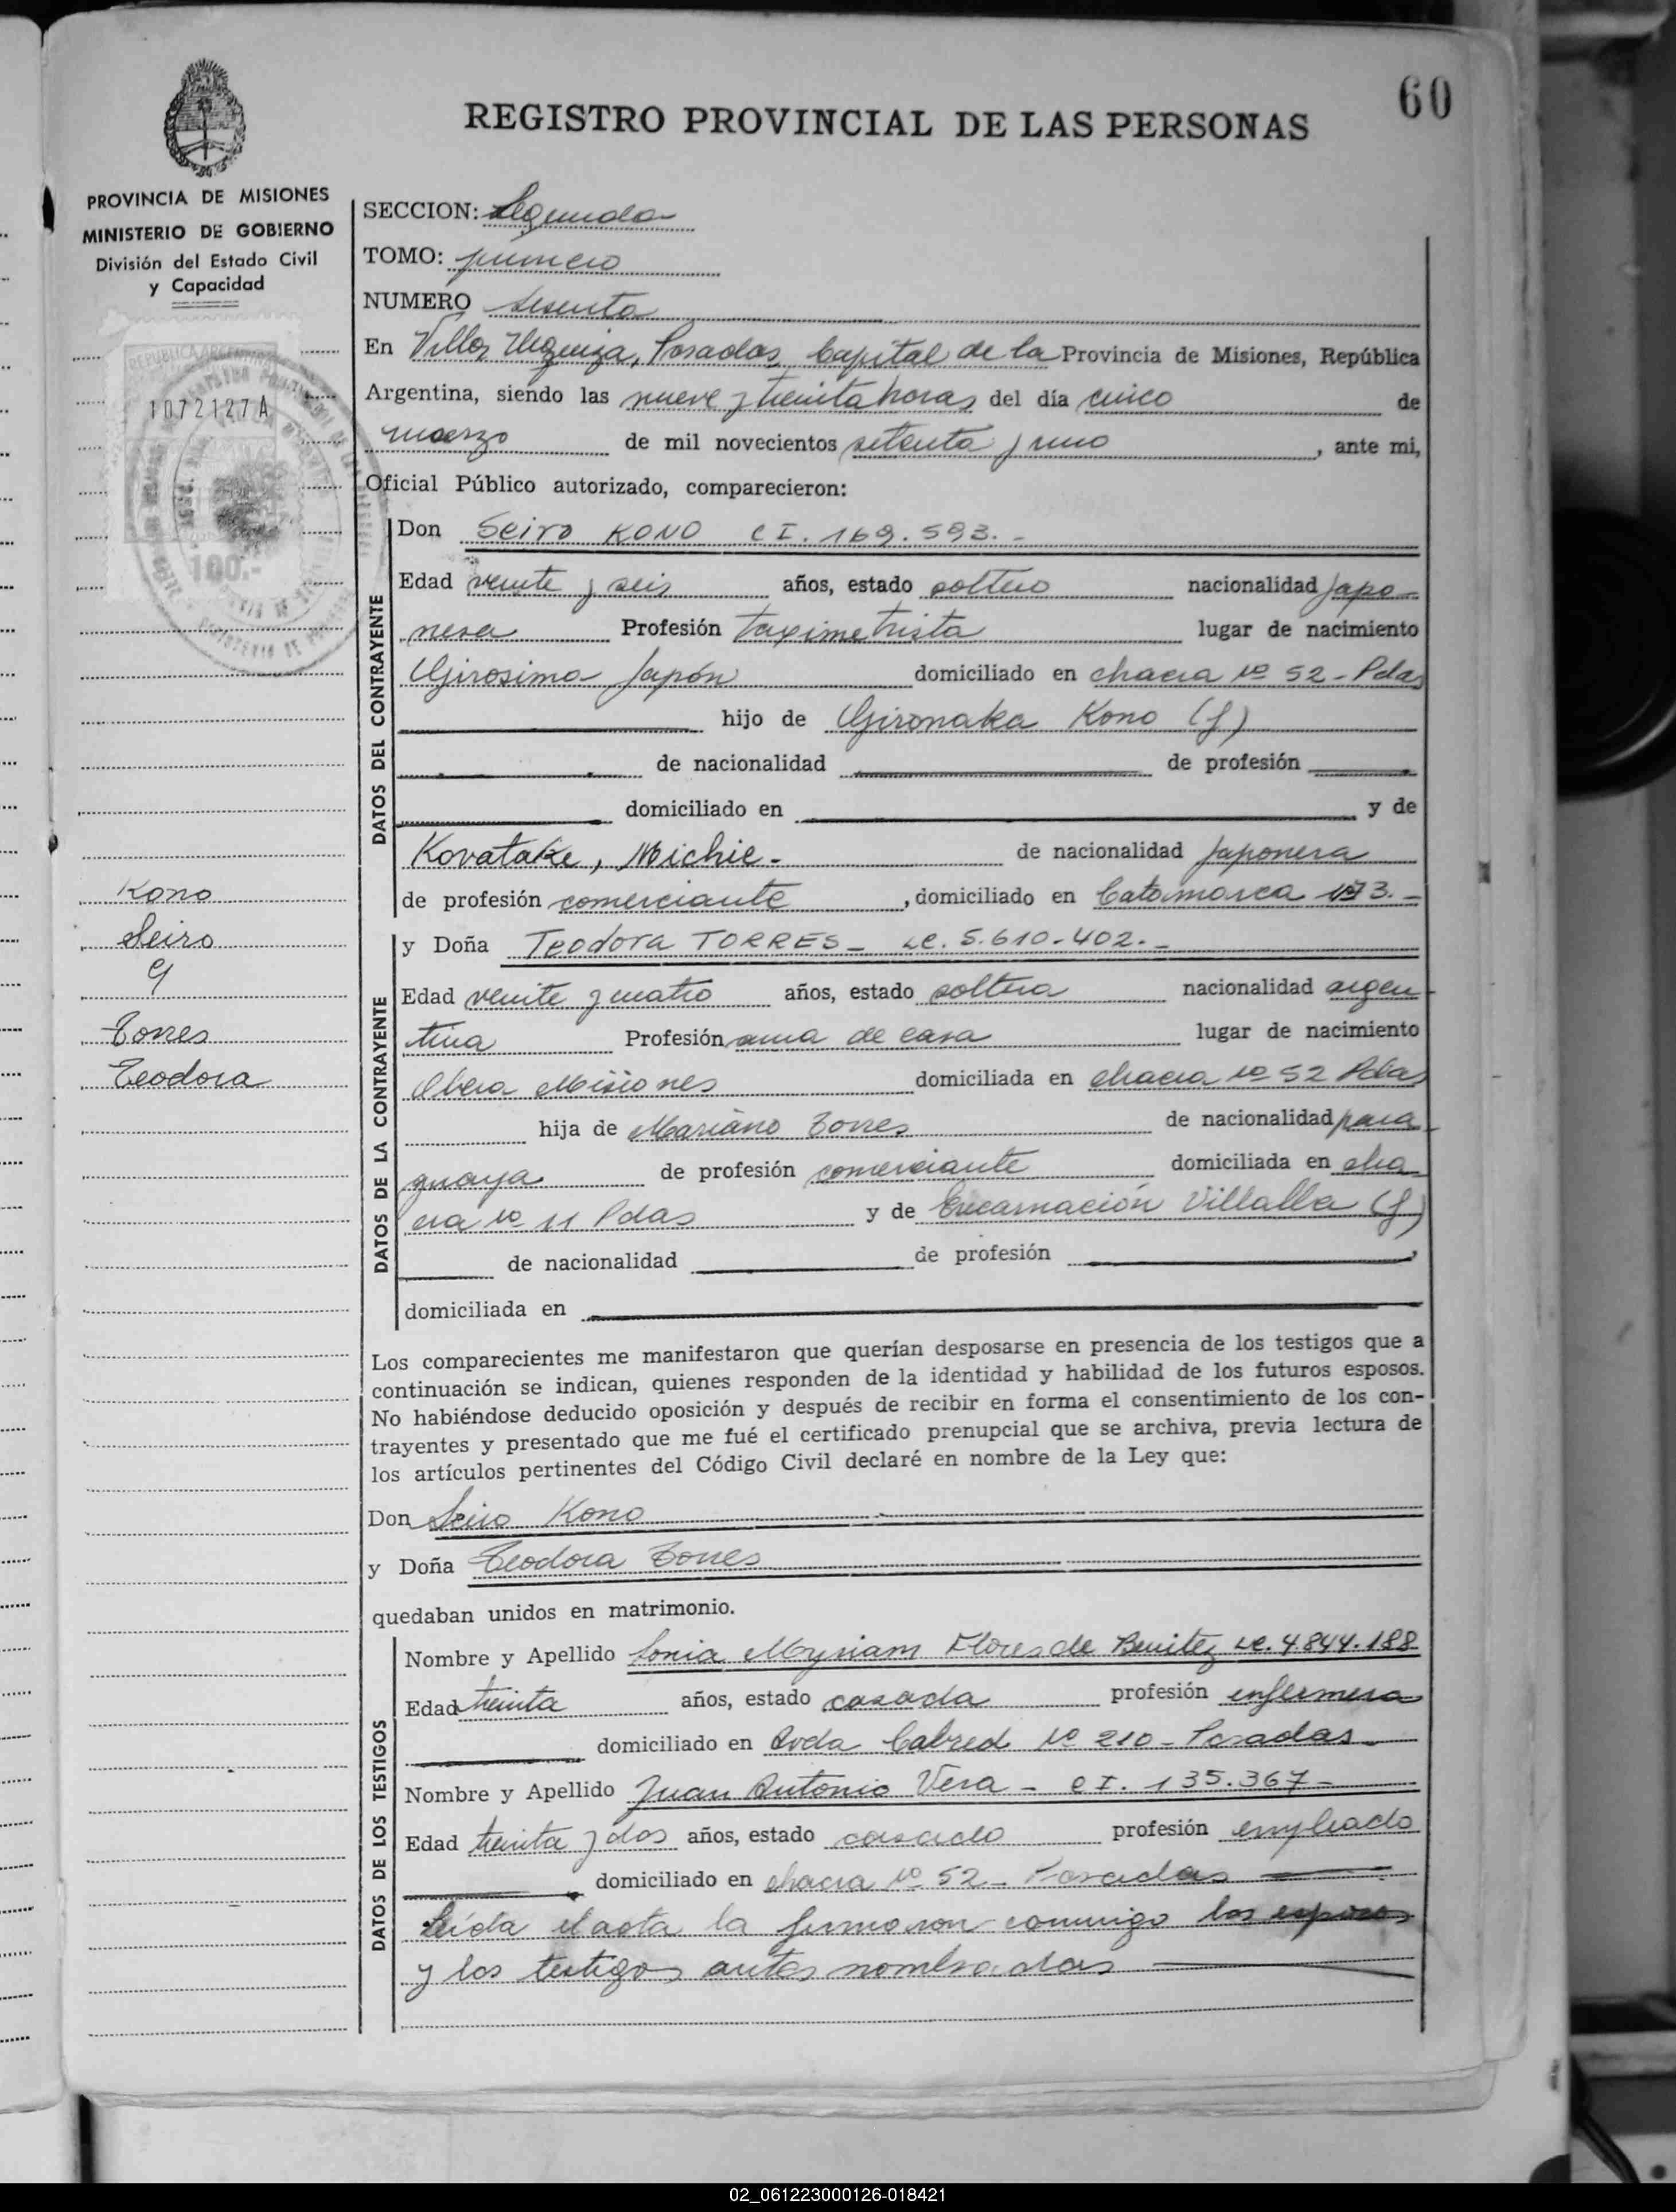 60
REGISTRO PROVINCIAL DE LAS PERSONAS
PROVINCIA DE MISIONES
MINISTERIO DE GOBIERNO
División del Estado Civil
y Capacidad
REPUBLICA ARGENTINA
1072127A
100.-
SECCION: Segunda
TOMO: primero
NUMERO sesenta
En Villa Urquiza, Posadas, Capital de la Provincia de Misiones, República
Argentina, siendo las nueve y treinta horas del día cinco de
marzo de mil novecientos setenta y uno, ante mi,
Oficial Público autorizado, comparecieron:
DATOS DEL CONTRAYENTE
Don Seiro KONO CI. 169.593.-
Edad veinte y seis años, estado soltero nacionalidad japo-
nesa Profesión taximetrista lugar de nacimiento
Girosima Japón domiciliado en chacra Nº 52 - Pdas
hijo de Gironaka Kono (f)
de nacionalidad de profesión
domiciliado en y de
Kovatake, Michie.- de nacionalidad japonesa
de profesión comerciante, domiciliado en Catamarca 173.-
Kono
Seiro
y
Torres
Teodora
DATOS DE LA CONTRAYENTE
y Doña Teodora TORRES - LC. 5.610.402.-
Edad veinte y cuatro años, estado soltera nacionalidad argen-
tina Profesión ama de casa lugar de nacimiento
Obera Misiones domiciliada en chacra Nº 52 Pdas
hija de Mariano Torres de nacionalidad para-
guaya de profesión comerciante domiciliada en cha-
cra Nº 11 Pdas y de Encarnación Villalba (f)
de nacionalidad de profesión
domiciliada en
Los comparecientes me manifestaron que querían desposarse en presencia de los testigos que a
continuación se indican, quienes responden de la identidad y habilidad de los futuros esposos.
No habiéndose deducido oposición y después de recibir en forma el consentimiento de los con-
trayentes y presentado que me fué el certificado prenupcial que se archiva, previa lectura de
los artículos pertinentes del Código Civil declaré en nombre de la Ley que:
Don Seiro Kono
y Doña Teodora Torres
quedaban unidos en matrimonio.
DATOS DE LOS TESTIGOS
Nombre y Apellido Sonia Myriam Flores de Benitez LC. 4.844.188
Edad treinta años, estado casada profesión enfermera
domiciliado en Avda Cabred Nº 210 - Posadas -
Nombre y Apellido Juan Antonio Vera - CI. 135.367 -
Edad treinta y dos años, estado casado profesión empleado
domiciliado en chacra Nº 52 - Posadas
Leída el acta la firmaron conmigo los esposos
y los testigos antes nombrados
02_061223000126-018421